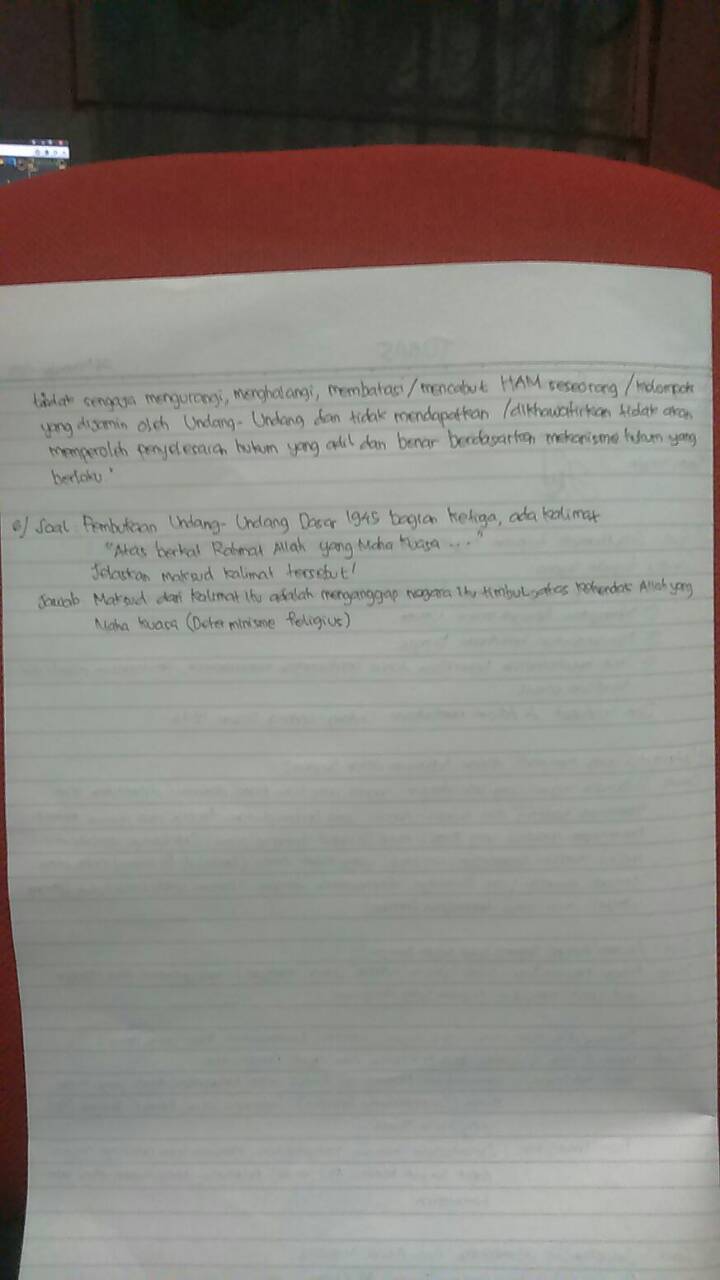 tidak sengaja mengurangi, menghalangi, membatasi/mencabut HAM seseorang/kelompok
yang dijamin oleh Undang-Undang dan tidak mendapatkan/dikhawatirkan tidak akan
memperoleh penyelesaian hukum yang adil dan benar berdasarkan mekanisme hukum yang
berlaku.
Soal Pembukaan Undang-Undang Dasar 1945 bagian ketiga, ada kalimat
"Atas berkat Rahmat Allah yang Maha Kuasa ..."
Jelaskan maksud kalimat tersebut!
Jawab Maksud dari kalimat itu adalah menganggap negara itu timbul atas kehendak Allah yang
Maha Kuasa (Determinisme Religius)